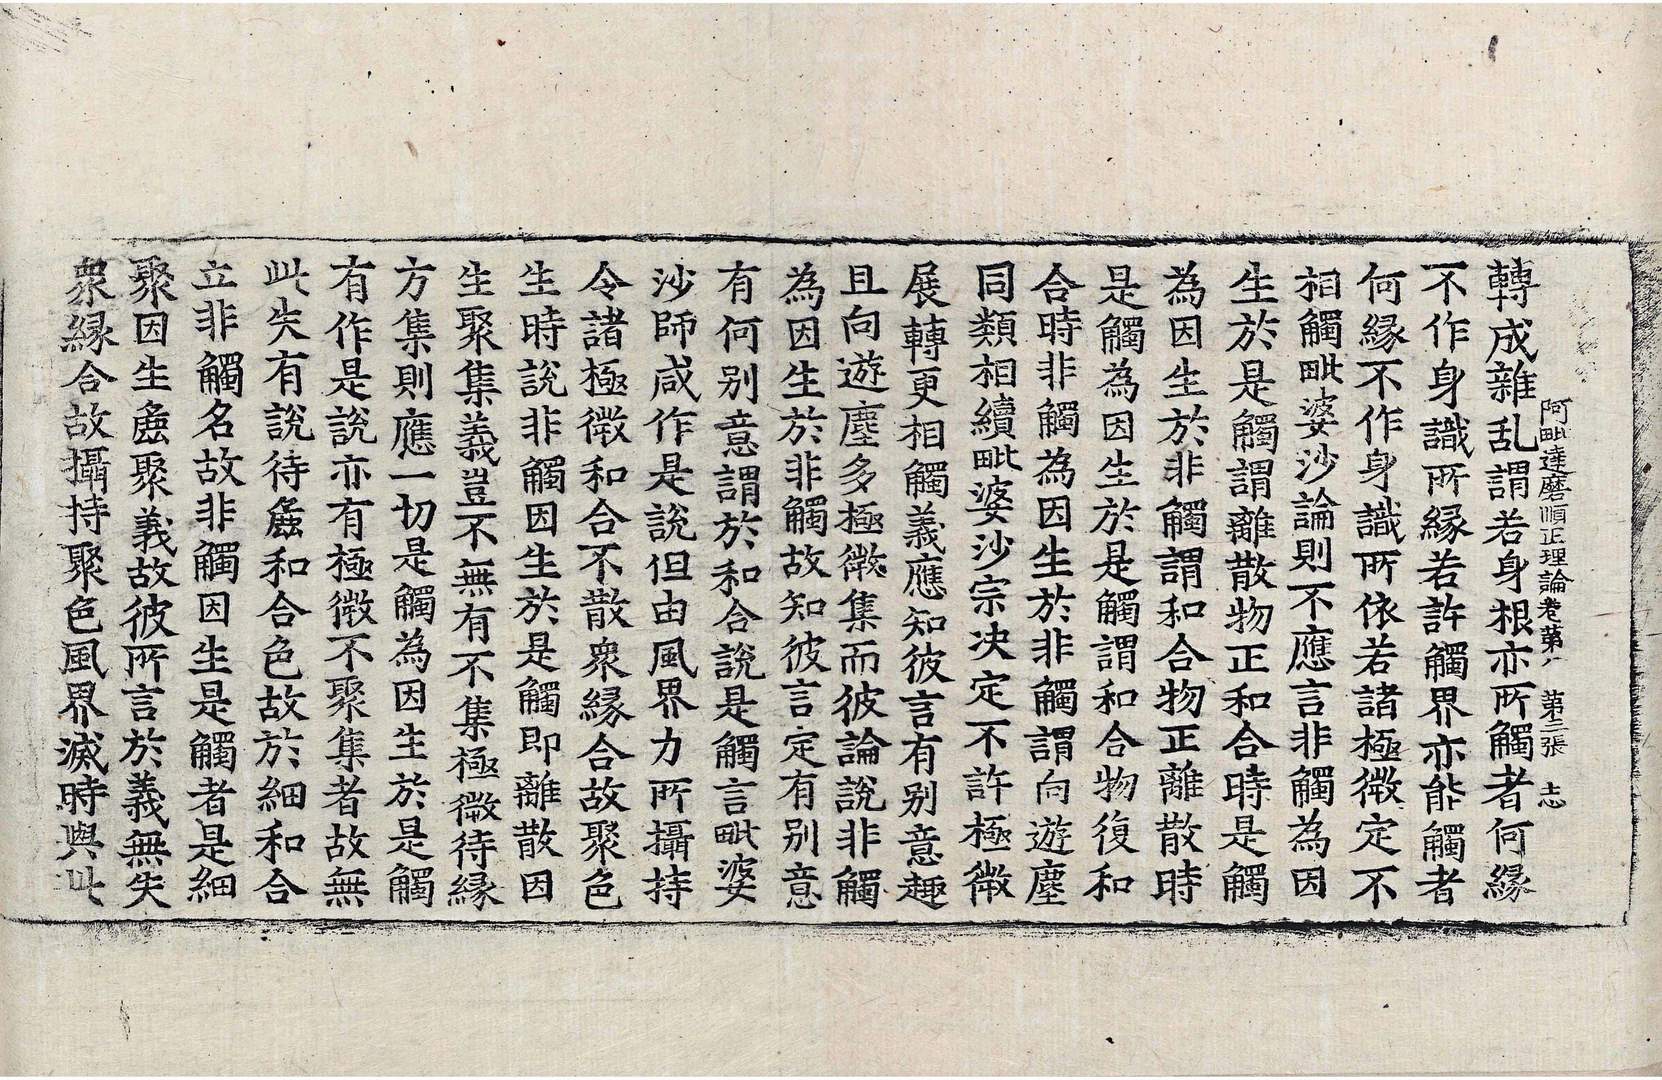 阿毗達磨順正理論卷第八 第三張 志
轉成雜乱謂若身根亦所觸者何緣
不作身識所緣若許觸界亦能觸者
何緣不作身識所依若諸極微定不
相觸毗婆沙論則不應言非觸為因
生於是觸謂離散物正和合時是觸
為因生於非觸謂和合物正離散時
是觸為因生於是觸謂和合物復和
合時非觸為因生於非觸謂向遊塵
同類相續毗婆沙宗決定不許極微
展轉更相觸義應知彼言有別意趣
且向遊塵多極微集而彼論說非觸
為因生於非觸故知彼言定有別意
有何別意謂於和合說是觸言毗婆
沙師咸作是說但由風界力所攝持
令諸極微和合不散衆緣合故聚色
生時說非觸因生於是觸即離散因
生聚集義豈不無有不集極微待緣
方集則應一切是觸為因生於是觸
有作是說亦有極微不聚集者故無
此失有說待麁和合色故於細和合
立非觸名故非觸因生是觸者是細
聚因生麁聚義故彼所言於義無失
衆緣合故攝持聚色風界滅時與此